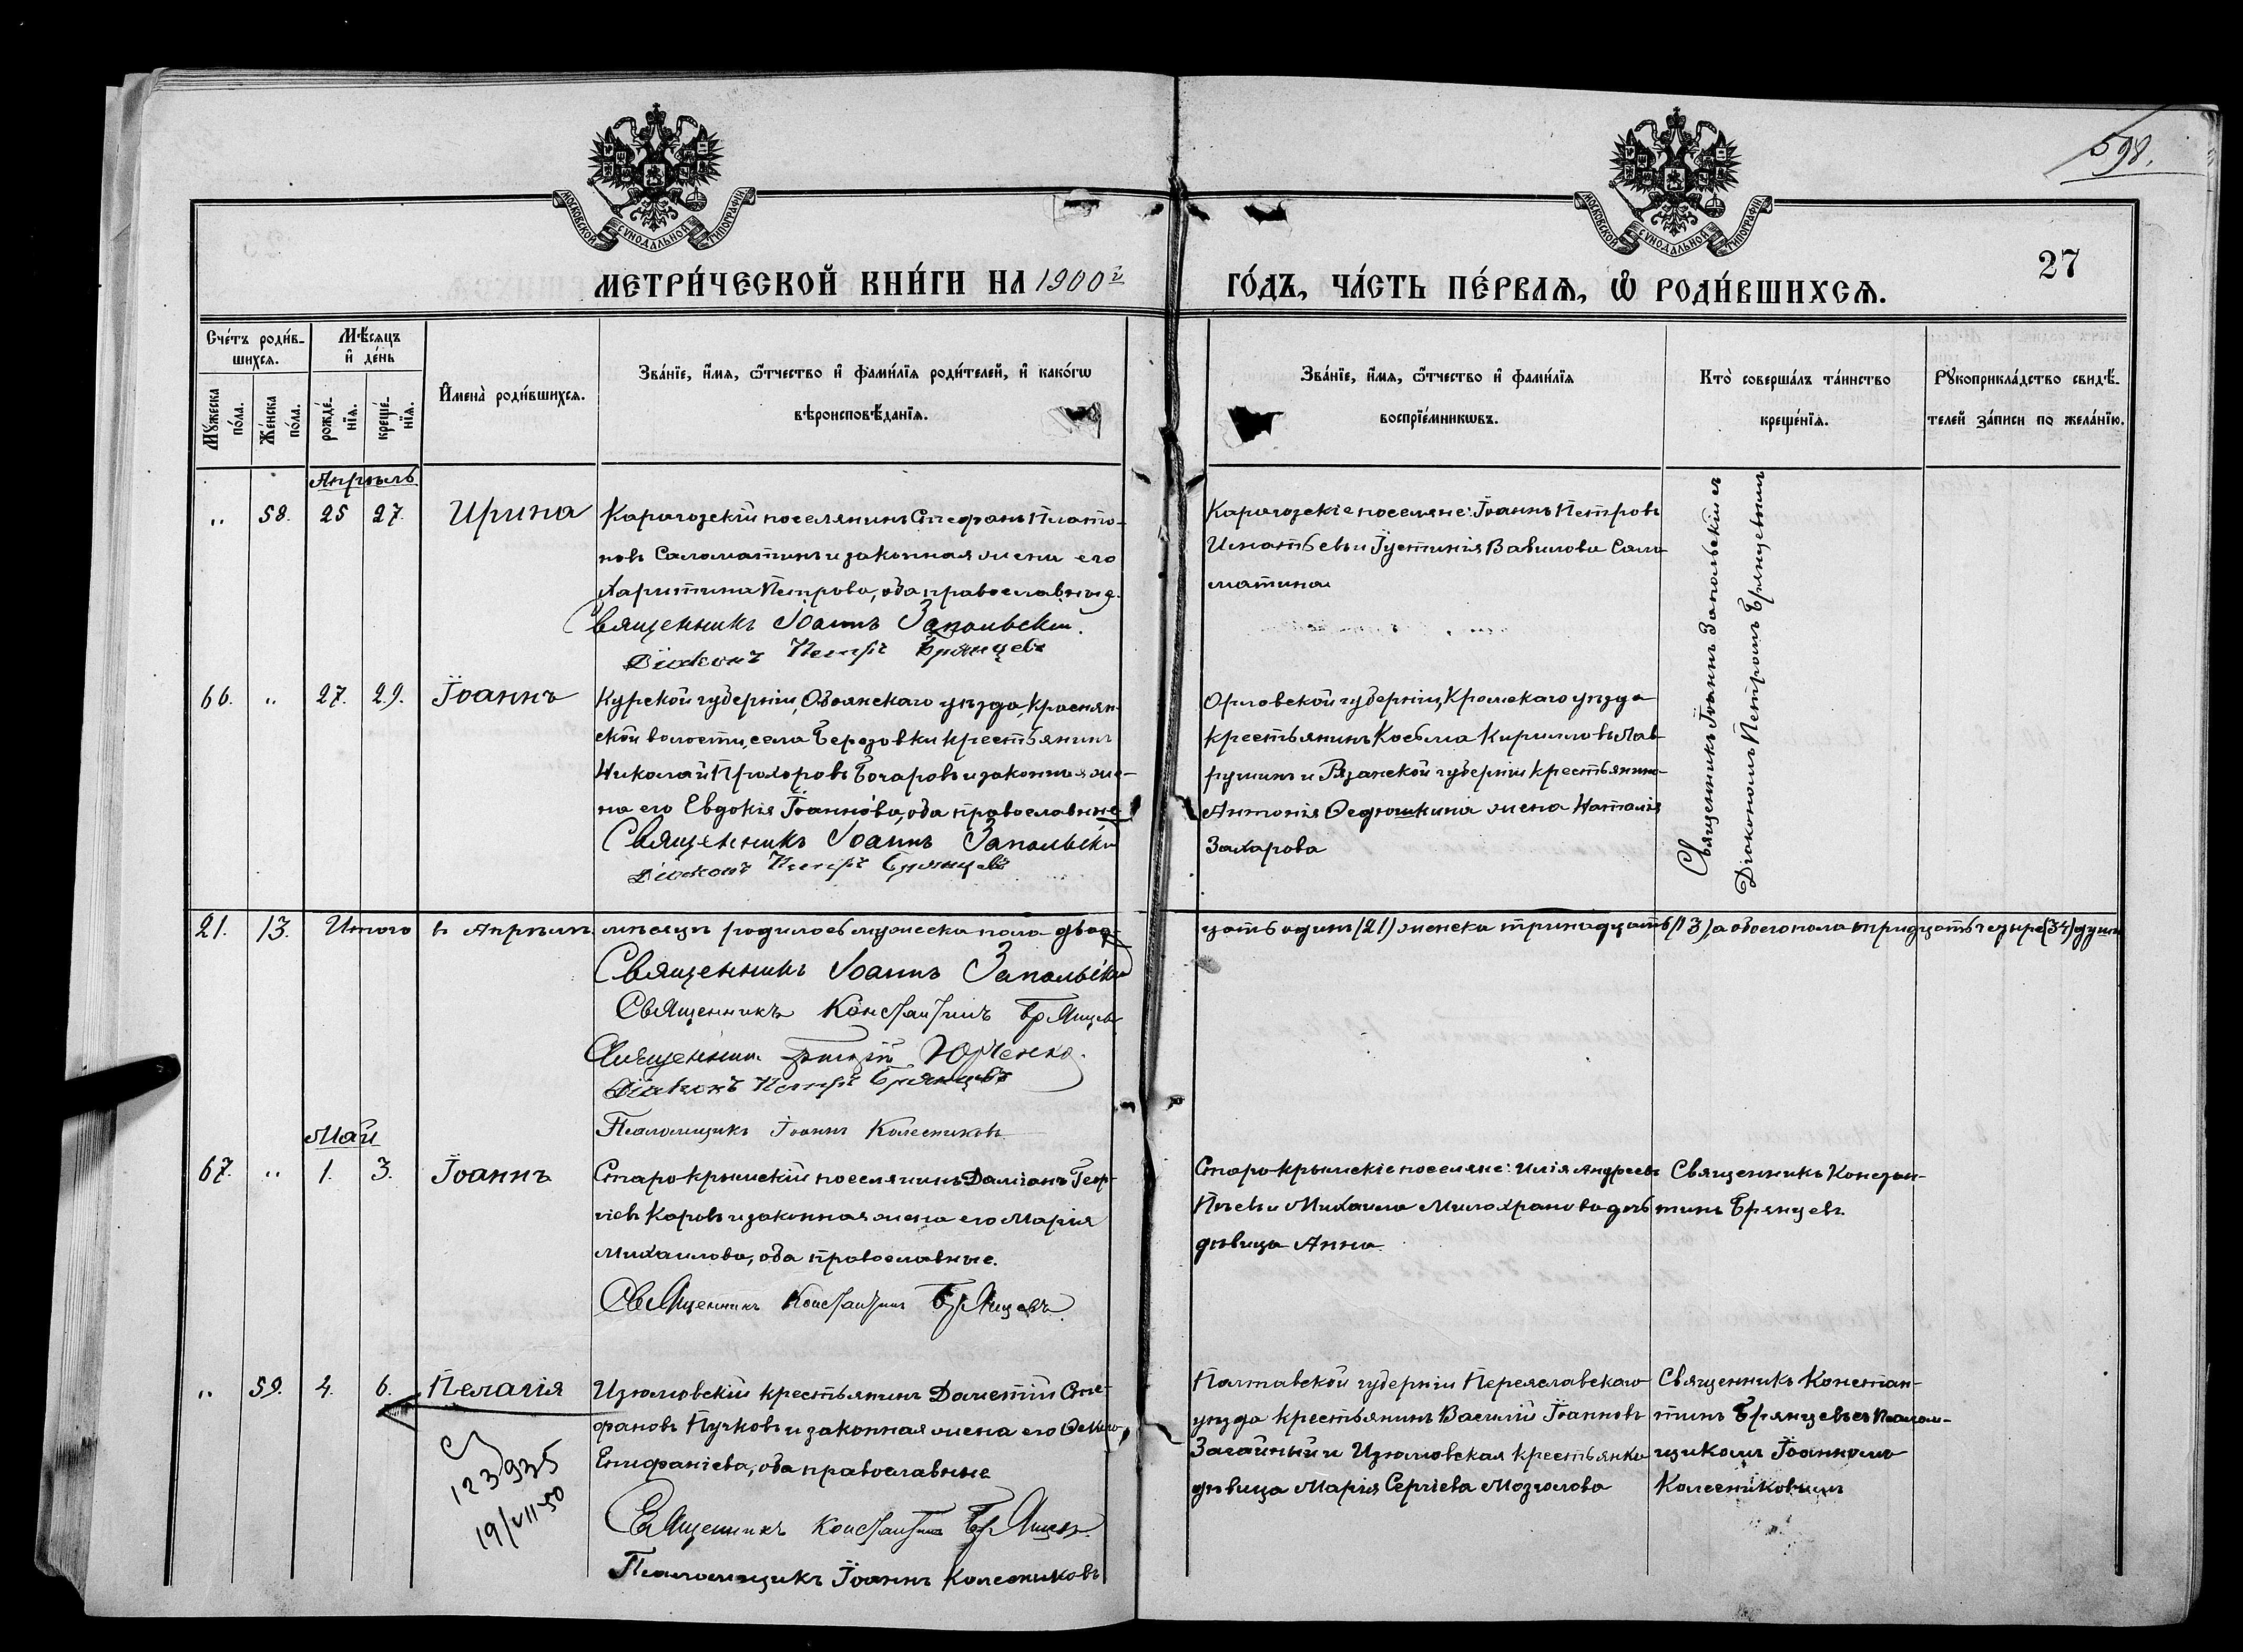 598.
27
МОСКОВСКОЙ СѴНОДАЛЬНОЙ ТИПОГРАФІИ
МОСКОВСКОЙ СѴНОДАЛЬНОЙ ТИПОГРАФІИ
МЕТРИ́ЧЕСКОЙ КНИ́ГИ НА 1900й
ГО́ДЪ, ЧА́СТЬ ПЕ́РВАѦ, Ѡ РОДИ́ВШИХСѦ.
Счéтъ роди́в-
шихсѧ.
Мѣ́сѧцъ
и҆ де́нь
Мꙋ́жеска
по́ла.
Же́нска
по́ла.
рожде́-
нїѧ.
креще́-
нїѧ.
И҆мена̀ роди́вшихсѧ.
Зва́нїе, и҆́мѧ, ѻ҆́тчество и҆ фами́лїѧ роди́телей, и҆ како́гѡ
вѣроисповѣ́данїѧ.
Зва́нїе, и҆́мѧ, ѻ҆́тчество и҆ фами́лїѧ
воспрїе́мникѡвъ.
Кто̀ соверша́лъ та́инство
креще́нїѧ.
Рꙋкоприкла́дство свидѣ́-
телей за́писи по жела́нїю.
Апрѣль
„ 58. 25 27. Ирина
Карагозскій поселянинъ Стефанъ Плато-
новъ Саломатинъ и законная жена его
Харитина Петрова, оба православные.
Священникъ Іоаннъ Запольскій.
Діаконъ Петръ Брянцевъ
Карагозскіе поселяне: Іоаннъ Петровъ
Игнатьевъ и Іустинія Вавилова Сало-
матина
Священникъ Іоаннъ Запольскій съ
Діакономъ Петромъ Брянцевымъ
66. „ 27. 29. Іоаннъ
Курской губерніи, Обоянскаго уѣзда, Краснян-
ской волости, села Березовки крестьянинъ
Николай Прохоровъ Бочаровъ и законная же-
на его Евдокія Іоаннова, оба православные
Священникъ Іоаннъ Запольскій
Діаконъ Петръ Брянцевъ
Орловской губерніи, Кромскаго уѣзда
крестьянинъ Косьма Кирилловъ Лав-
рушинъ и Рязанской губерніи крестьянина
Антонія Ѳедюшкина жена Наталія
Захарова
21. 13. Итого въ Апрѣлѣ мѣсяцѣ родилось мужеска пола двад-
цать одинъ (21) женска тринадцать (13), а обоего пола тридцать четыре (34) души
Священникъ Іоаннъ Запольскій
Священникъ Константинъ Брянцевъ
Священникъ Юрченко.
Діаконъ Петръ Брянцевъ
Псаломщикъ Іоаннъ Колесниковъ
Май
67. „ 1. 3. Іоаннъ
Старо-крымскій поселянинъ Даміанъ Геор-
гіевъ Каровъ и законная жена его Марія
Михаилова, оба православные.
Священникъ Константинъ Брянцевъ.
Старо-крымскіе поселяне: Илія Андреевъ
и Михаила Милохранова дочь
дѣвица Анна
Священникъ Констан-
тинъ Брянцевъ
„ 59. 4. 6. Пелагія
Изюмовскій крестьянинъ Дометій Сте-
фановъ Пучковъ и законная жена его Ѳекла
Епифаніева, оба православные
Священникъ Константинъ Брянцевъ.
Псаломщикъ Іоаннъ Колесниковъ
Полтавской губерніи Переяславскаго
уѣзда крестьянинъ Василій Іоанновъ
Загайный и Изюмовская крестьянка
дѣвица Марія Сергіева Мозголова
Священникъ Констан-
тинъ Брянцевъ съ Псалом-
щикомъ Іоанномъ
Колесниковымъ
123935
19/VII 50